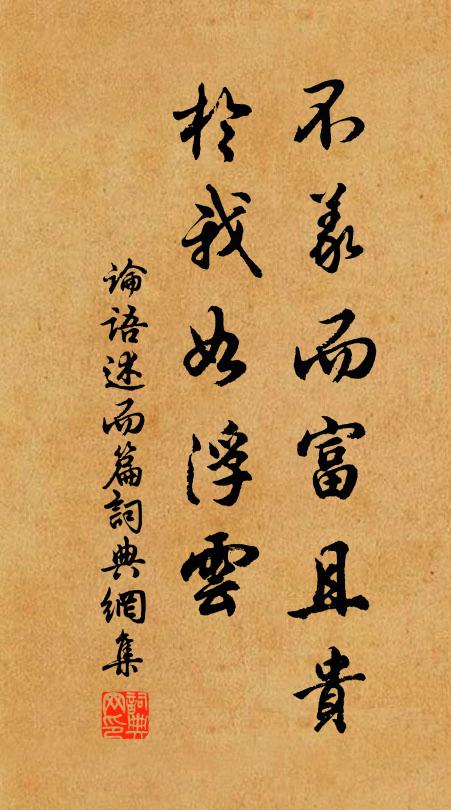 不義而富且貴
於我如浮雲
論語述而篇詞典網集
詞典网印